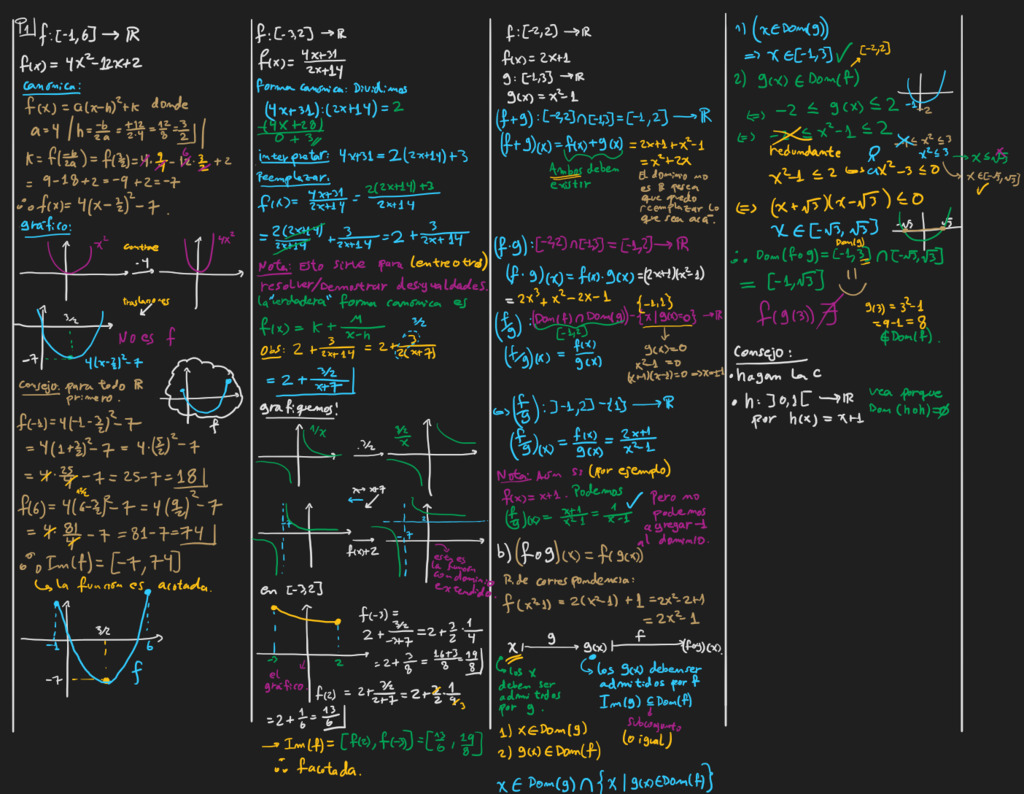 P1] f: [-1,6] → ℝ
f(x) = 4x²-12x+2
canónica:
f(x) = a(x-h)²+k donde
a=4 / h = -b/2a = +12/2·4 = 12/8 = 3/2
k = f(-b/2a) = f(3/2) = 4·9/4 - 12·3/2 + 2
= 9-18+2 = -9+2 = -7
∴ f(x) = 4(x-3/2)² - 7.
gráfico:
x²
contrae
·4
4x²
traslaciones
3/2
-7
4(x-3/2)²-7
No es f
Consejo: para todo ℝ
primero.
f
f(-1) = 4(-1-3/2)² - 7
= 4(1+3/2)² - 7 = 4·(5/2)² - 7
= 4·25/4 - 7 = 25-7 = 18
f(6) = 4(6-3/2)² - 7 = 4(9/2)² - 7
= 4·81/4 - 7 = 81-7 = 74
∴ Im(f) = [-7, 74]
↳ la función es acotada.
-1
3/2
6
-7
f
f: [-3,2] → ℝ
f(x) = 4x+31/2x+14
forma canónica: Dividimos
(4x+31):(2x+14) = 2
-(4x+28)
0+3
interpretar: 4x+31 = 2(2x+14)+3
Reemplazar.
f(x) = 4x+31/2x+14 = 2(2x+14)+3/2x+14
= 2(2x+14)/2x+14 + 3/2x+14 = 2 + 3/2x+14
Nota: Esto sirve para (entre otros)
resolver/demostrar desigualdades.
la "verdadera" forma canónica es
f(x) = K + M/x-h
3/2
Obs: 2 + 3/2x+14 = 2 + 3/2(x+7)
= 2 + 3/2/x+7
grafiquemos!
1/x
·3/2
3/2/x
x → x+7
-7
f(x)+2
-7
2
esta es
la función
con dominio
extendido
en [-3,2]
-3
2
el
gráfico.
f(-3) =
2 + 3/2/-3+7 = 2 + 3/2·1/4
= 2 + 3/8 = 16+3/8 = 19/8
f(2) = 2 + 3/2/2+7 = 2 + 3/2·1/9 3
= 2 + 1/6 = 13/6
→ Im(f) = [f(2), f(-3)] = [13/6, 19/8]
∴ f acotada.
f: [-2,2] → ℝ
f(x) = 2x+1
g: [-1,3] → ℝ
g(x) = x²-1
(f+g): [-2,2] ∩ [-1,3] = [-1,2] → ℝ
(f+g)(x) = f(x)+g(x) = 2x+1+x²-1
= x²+2x
Ambas deben
existir
El dominio no
es ℝ pesca
que puedo
reemplazar lo
que sea acá.
(f·g): [-2,2] ∩ [-1,3] = [-1,2] → ℝ
(f·g)(x) = f(x)·g(x) = (2x+1)(x²-1)
= 2x³+x²-2x-1
{-1,1}
(f/g): (Dom(f) ∩ Dom(g)) - {x | g(x)=0} → ℝ
[-1,2]
(f/g)(x) = f(x)/g(x)
g(x)=0
x²-1 = 0
(x+1)(x-1)=0 ⇒ x=±1
⇔ (f/g): ]-1,2] - {1} → ℝ
(f/g)(x) = f(x)/g(x) = 2x+1/x²-1
Nota: Aún si (por ejemplo)
f(x) = x+1. Podemos
(f/g)(x) = x+1/x²-1 = 1/x-1 ✓
Pero no
podemos
agregar -1
al dominio.
b) (f∘g)(x) = f(g(x))
R. de correspondencia:
f(x²-1) = 2(x²-1)+1 = 2x²-2+1
= 2x²-1
x g g(x) f (f∘g)(x).
↳ los x
deben ser
admitidos
por g.
↳ los g(x) deben ser
admitidos por f
Im(g) ⊆ Dom(f)
subconjunto
(o igual)
1) x ∈ Dom(g)
2) g(x) ∈ Dom(f)
x ∈ Dom(g) ∩ {x | g(x) ∈ Dom(f)}
1) (x ∈ Dom(g))
⇒ x ∈ [-1,3] ✓
[-2,2]
2) g(x) ∈ Dom(f)
-1
-2
⇔ -2 ≤ g(x) ≤ 2
⇔ -2 ≤ x²-1 ≤ 2
redundante
x² ≤ 3
x²-1 ≤ 2 ⇔ x²-3 ≤ 0
x ∈ [-√3, √3]
✓
⇔ (x+√3)(x-√3) ≤ 0
x ∈ [-√3, √3]
-√3
√3
Dom(g)
∴ Dom(f∘g) = [-1,3] ∩ [-√3, √3]
= [-1, √3]
f(g(3)) ∄
g(3) = 3²-1
= 9-1 = 8
∉ Dom(f).
Consejo:
• hagan la c
• h: ]0,1[ → ℝ
por h(x) = x+1
vea porque
Dom(h∘h) = ∅